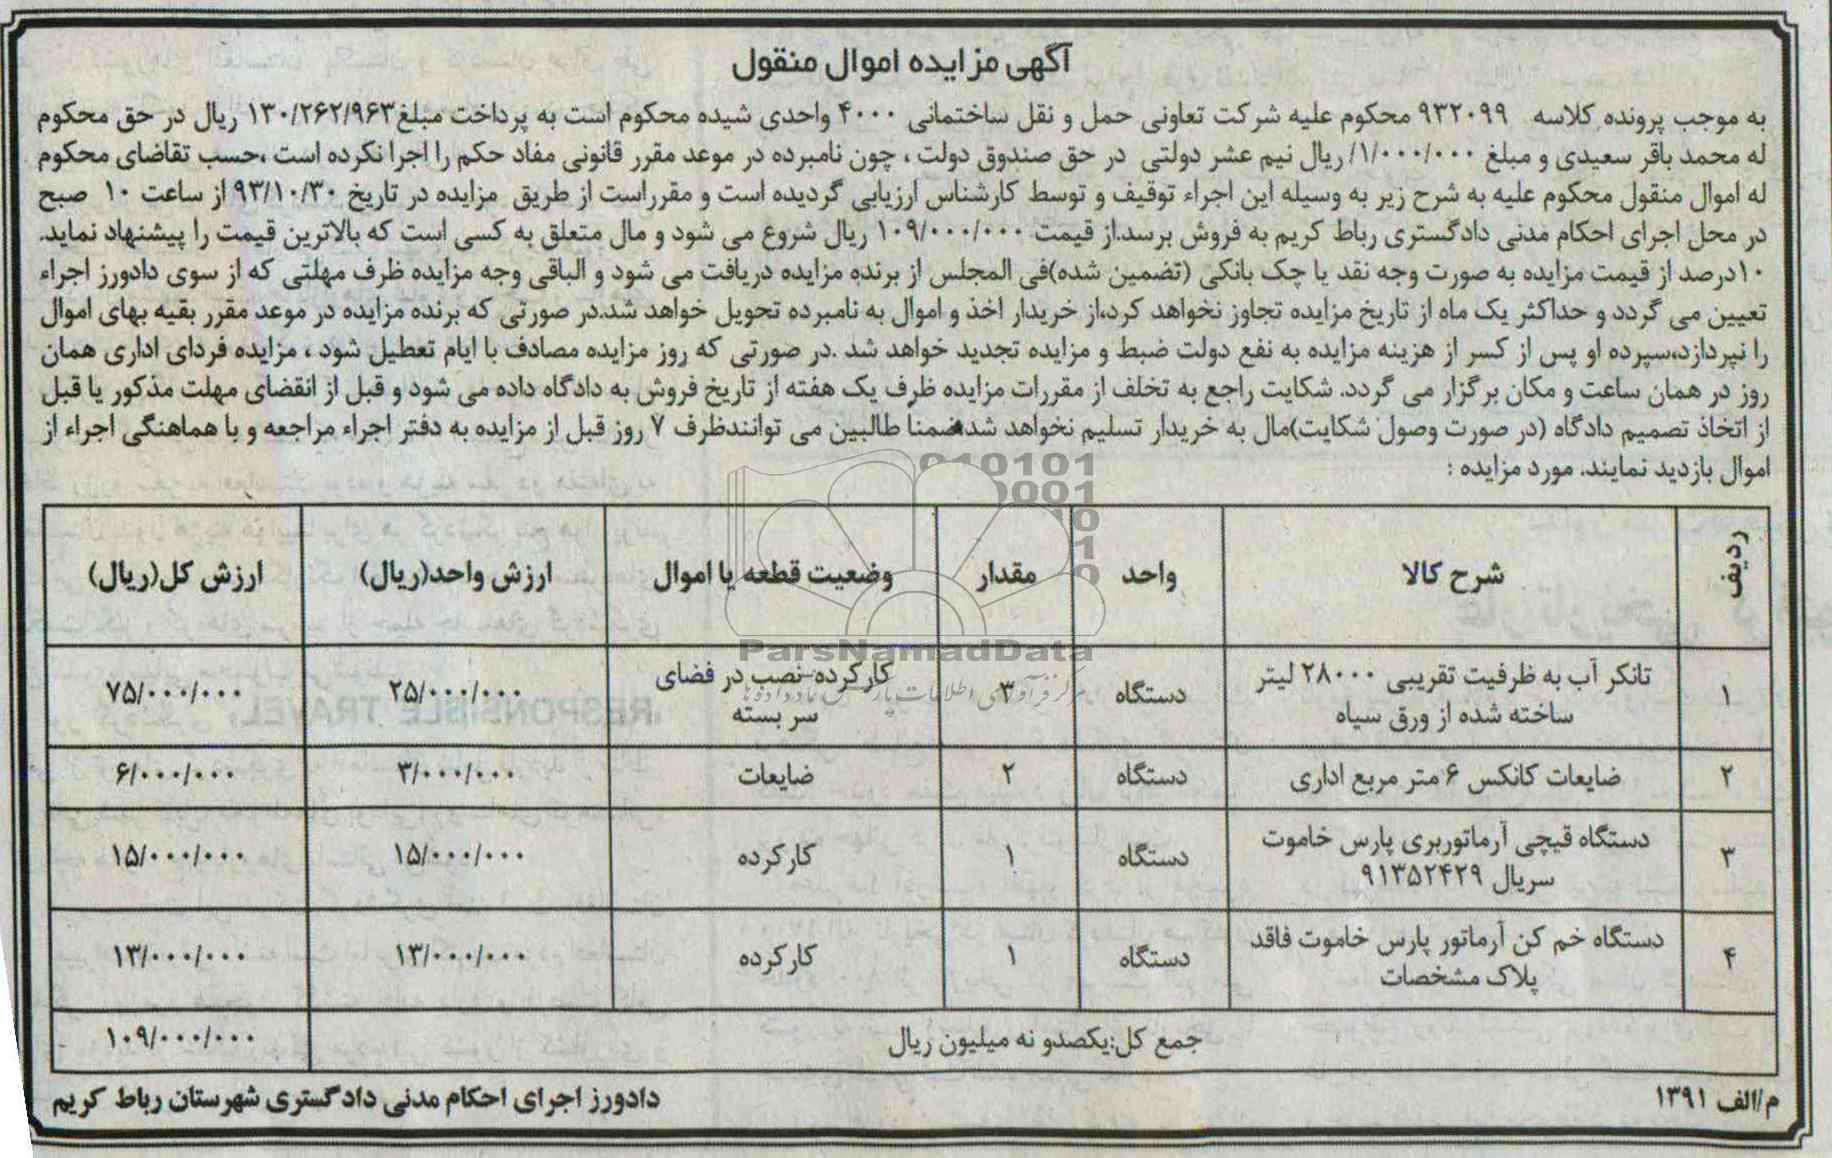 آگهی مزایده اموال منقول
به موجب پرونده کلاسه ۹۳۲۰۹۹ محکوم علیه شرکت تعاونی حمل و نقل ساختمانی ۴۰۰۰ واحدی شیده محکوم است به پرداخت مبلغ۱۳۰/۲۶۲/۹۶۳ ریال در حق محکوم
له محمد باقر سعیدی و مبلغ ۱/۰۰۰/۰۰۰/ ریال نیم عشر دولتی در حق صندوق دولت ، چون نامبرده در موعد مقرر قانونی مفاد حکم را اجرا نکرده است ،حسب تقاضای محکوم
له اموال منقول محکوم علیه به شرح زیر به وسیله این اجراء توقیف و توسط کارشناس ارزیابی گردیده است و مقرراست از طریق مزایده در تاریخ ۹۳/۱۰/۳۰ از ساعت ۱۰ صبح
در محل اجرای احکام مدنی دادگستری رباط کریم به فروش برسد.از قیمت ۱۰۹/۰۰۰/۰۰۰ ریال شروع می شود و مال متعلق به کسی است که بالاترین قیمت را پیشنهاد نماید.
۱۰درصد از قیمت مزایده به صورت وجه نقد یا چک بانکی (تضمین شده)فی المجلس از برنده مزایده دریافت می شود و الباقی وجه مزایده ظرف مهلتی که از سوی دادورز اجراء
تعیین می گردد و حداکثر یک ماه از تاریخ مزایده تجاوز نخواهد کرد،از خریدار اخذ و اموال به نامبرده تحویل خواهد شد.در صورتی که برنده مزایده در موعد مقرر بقیه بهای اموال
را نپردازد،سپرده او پس از کسر از هزینه مزایده به نفع دولت ضبط و مزایده تجدید خواهد شد .در صورتی که روز مزایده مصادف با ایام تعطیل شود ، مزایده فردای اداری همان
روز در همان ساعت و مکان برگزار می گردد. شکایت راجع به تخلف از مقررات مزایده ظرف یک هفته از تاریخ فروش به دادگاه داده می شود و قبل از انقضای مهلت مذکور یا قبل
از اتخاذ تصمیم دادگاه (در صورت وصول شکایت)مال به خریدار تسلیم نخواهد شد.ضمنا طالبین می توانندظرف ۷ روز قبل از مزایده به دفتر اجراء مراجعه و با هماهنگی اجراء از
اموال بازدید نمایند. مورد مزایده :
ردیف شرح کالا واحد مقدار وضعیت قطعه یا اموال ارزش واحد(ریال) ارزش کل(ریال)
۱ تانکر آب به ظرفیت تقریبی ۲۸۰۰۰ لیتر ساخته شده از ورق سیاه دستگاه ۳ کارکرده-نصب در فضای سر بسته ۲۵/۰۰۰/۰۰۰ ۷۵/۰۰۰/۰۰۰
۲ ضایعات کانکس ۶ متر مربع اداری دستگاه ۲ ضایعات ۳/۰۰۰/۰۰۰ ۶/۰۰۰/۰۰۰
۳ دستگاه قیچی آرماتوربری پارس خاموت سریال ۹۱۳۵۲۴۲۹ دستگاه ۱ کارکرده ۱۵/۰۰۰/۰۰۰ ۱۵/۰۰۰/۰۰۰
۴ دستگاه خم کن آرماتور پارس خاموت فاقد پلاک مشخصات دستگاه ۱ کارکرده ۱۳/۰۰۰/۰۰۰ ۱۳/۰۰۰/۰۰۰
جمع کل:یکصدو نه میلیون ریال ۱۰۹/۰۰۰/۰۰۰
م/الف ۱۳۹۱ دادورز اجرای احکام مدنی دادگستری شهرستان رباط کریم
ParsNamadData